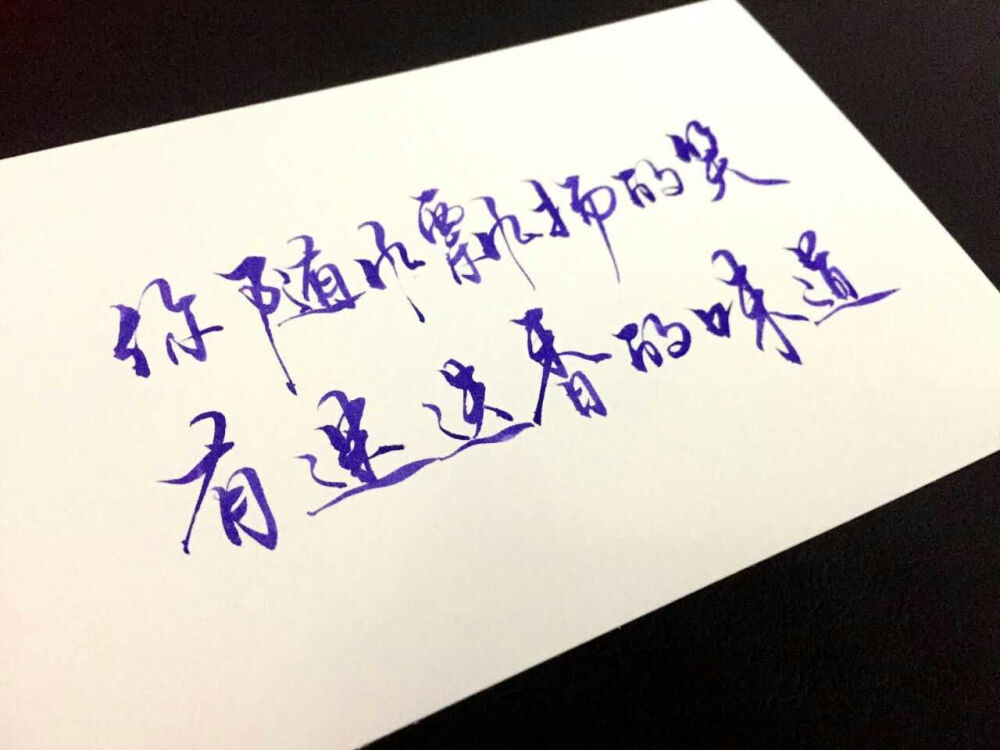 你随风飘扬的笑
有迷迭香的味道